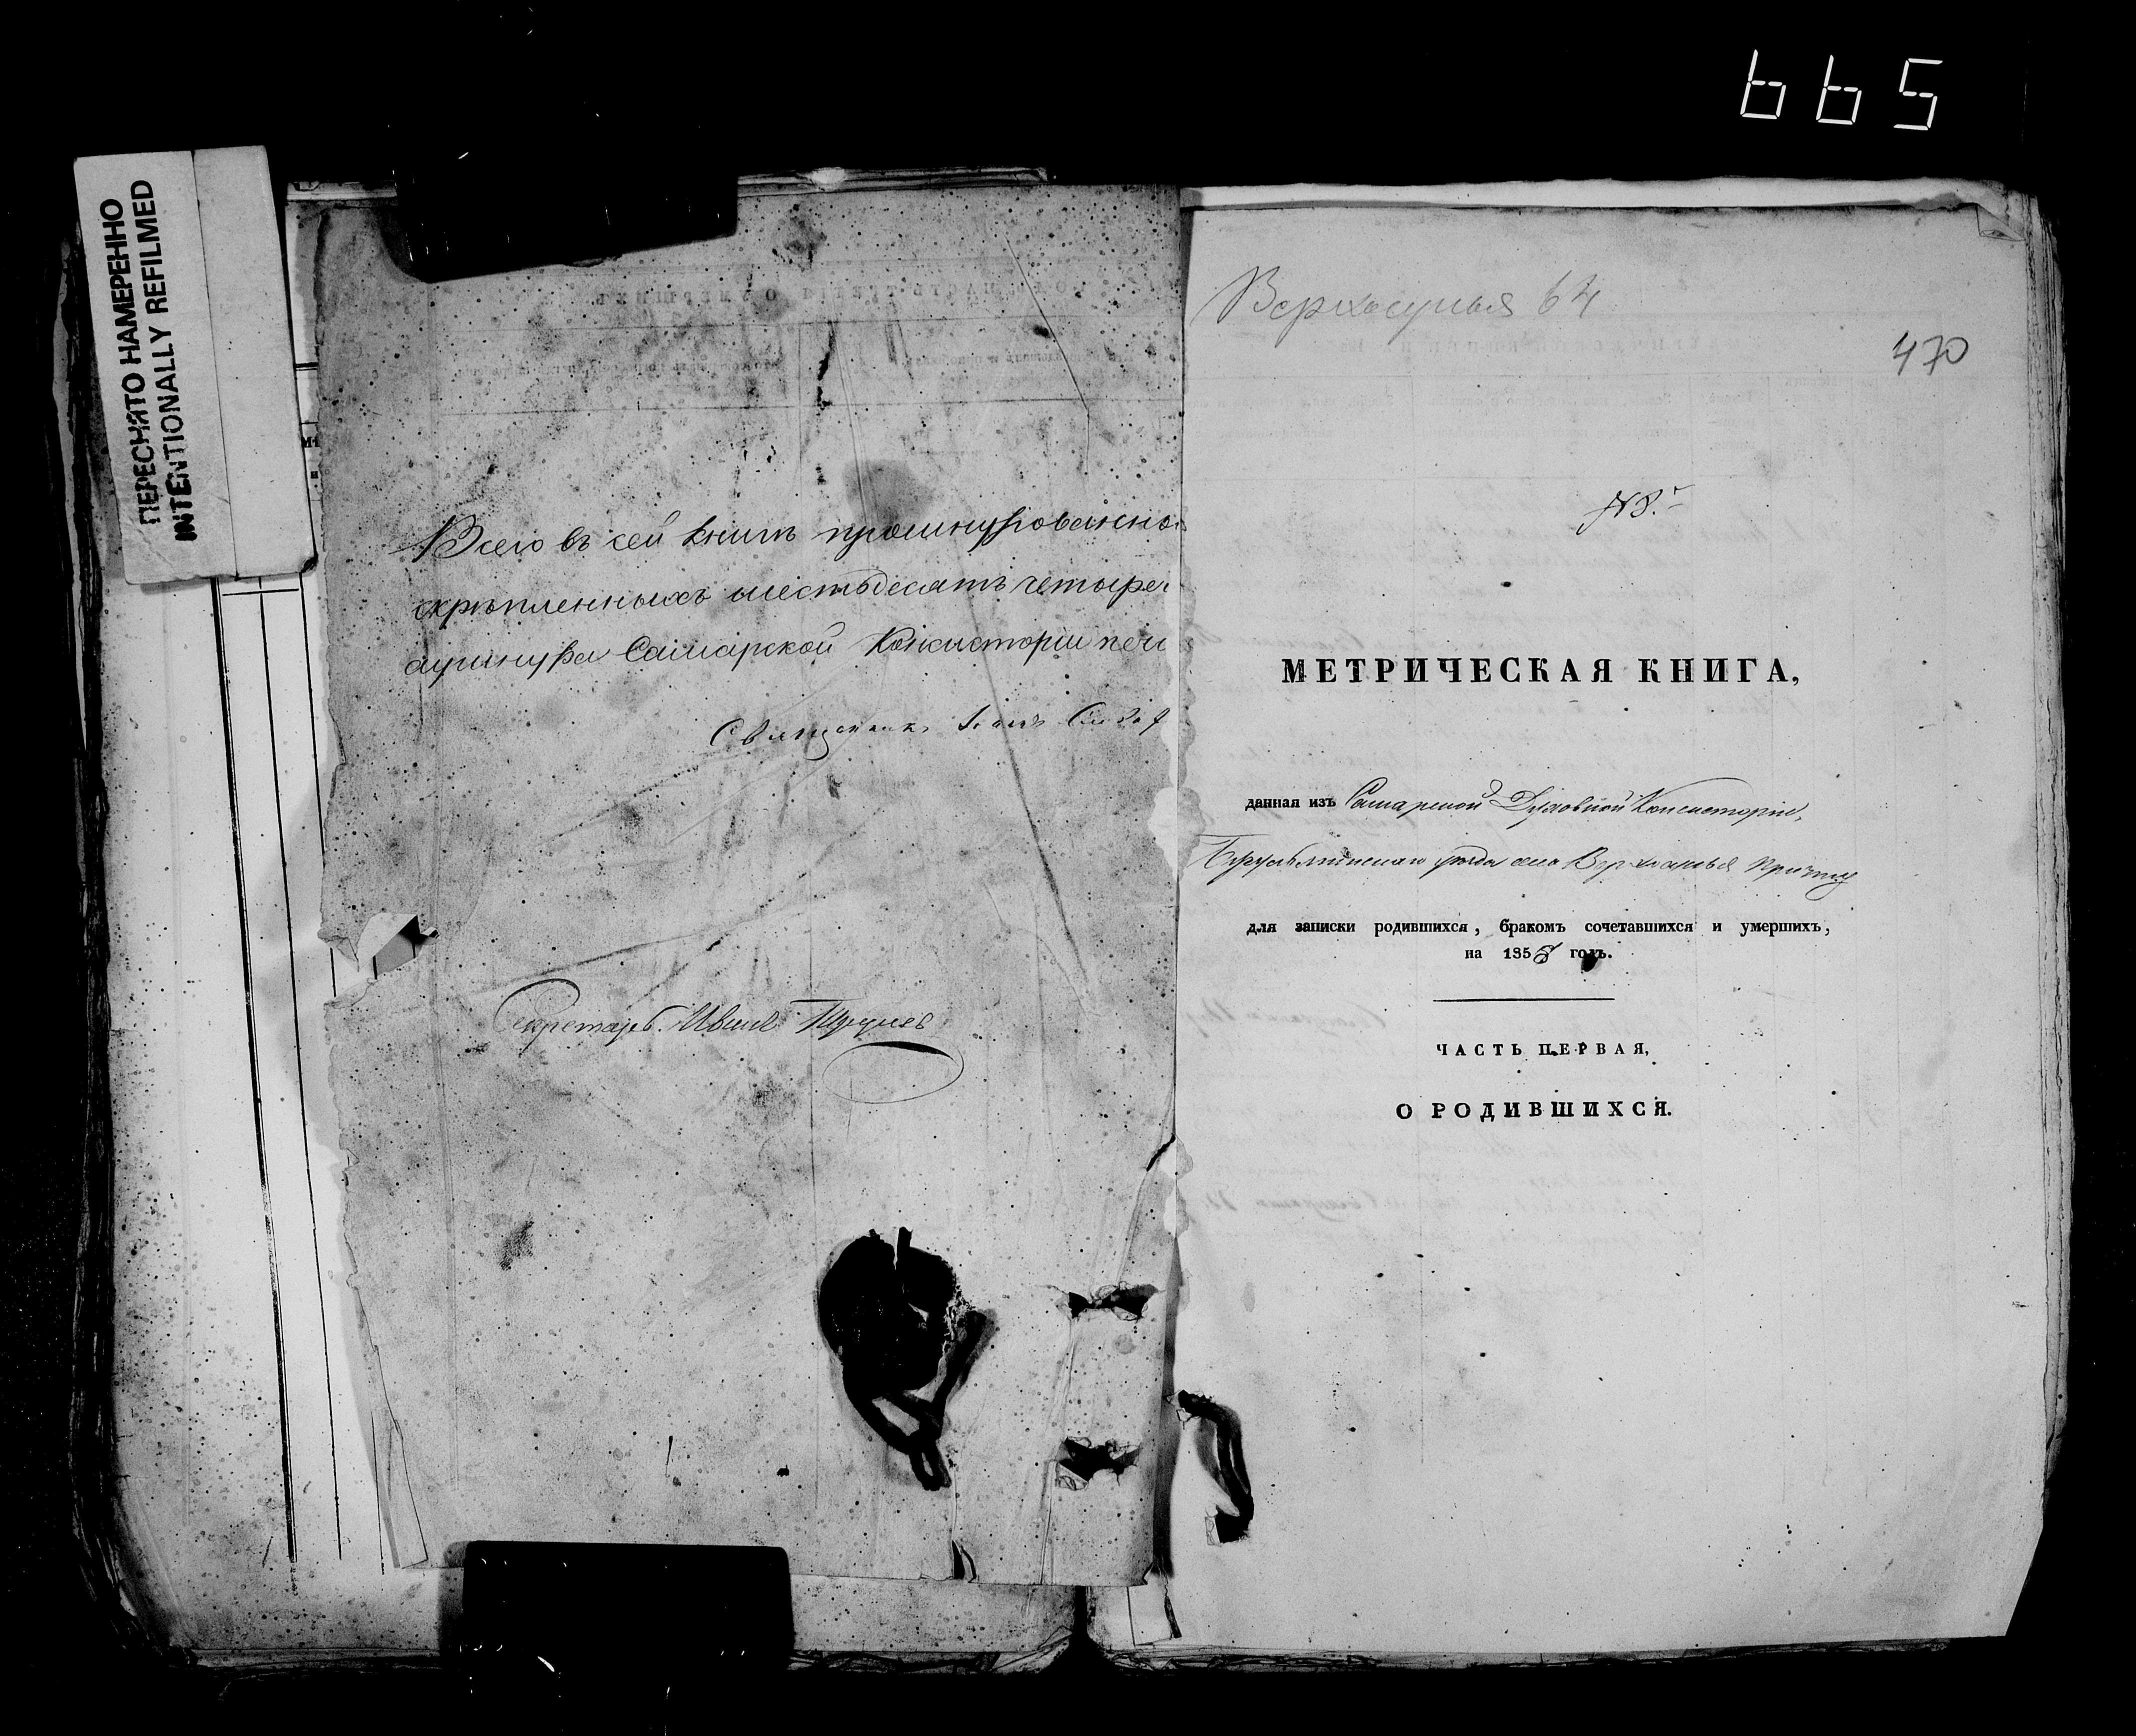 665
ПЕРЕСНЯТО НАМЕРЕННО
INTENTIONALLY REFILMED
Всего въ сей книгѣ прошнурованно
скрѣпленныхъ шестьдесятъ четыре
а у шнура Самарской Консисторіи печ
Священникъ
Секретарь Иванъ
64
470
№ 8.
МЕТРИЧЕСКАЯ КНИГА,
данная изъ Самарской Духовной Консисторіи,
уѣзда села причту
для записки родившихся, бракомъ сочетавшихся и умершихъ,
на 1858 годъ.
ЧАСТЬ ПЕРВАЯ,
О РОДИВШИХСЯ.